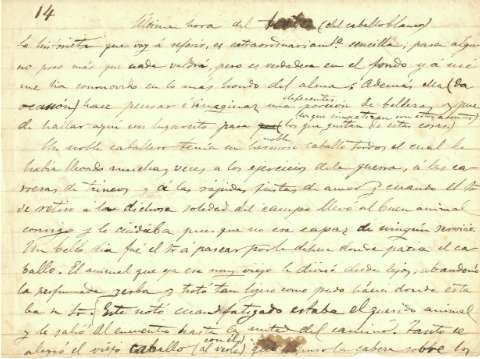 14
Última hora del (del caballo blanco)
La historieta que voy á referir, es extraordinariamte. sencilla; para algu-
no poco más que nada valdrá, pero es verdadera en el fondo y á mi
me ha conmovido en lo más hondo del alma. Además ella (da
ocasión) hace pensar é imaginar una porción de belleza, y que
diferentes
de hallar aquí un para (los que gustan de estas cosas)
Un noble caballero tenía un hermoso caballo todos el cual le
había llevado muchas veces a los ejercicios de la guerra, á las ca-
rreras de trineos y á las rápidas de amor; y cuando el Sr
se retiró á la dichosa soledad del campo llevó al buen animal
consigo y le cuidaba pues que no era capaz de ningún servicio
Un bello día fué el Sr á pasear por la dehesa donde pacía el ca-
ballo. El animal que era muy viejo le divisó desde lejos, abandonó
la perfumada yerba y trotó tan ligero como pudo hacia donde esta
ba su Sr. Este notó cuan fatigado estaba el querido animal
y le salió al encuentro hasta la mitad del camino. Tanto se
con él
alegró el viejo caballo (al verle) que la cabeza sobre los